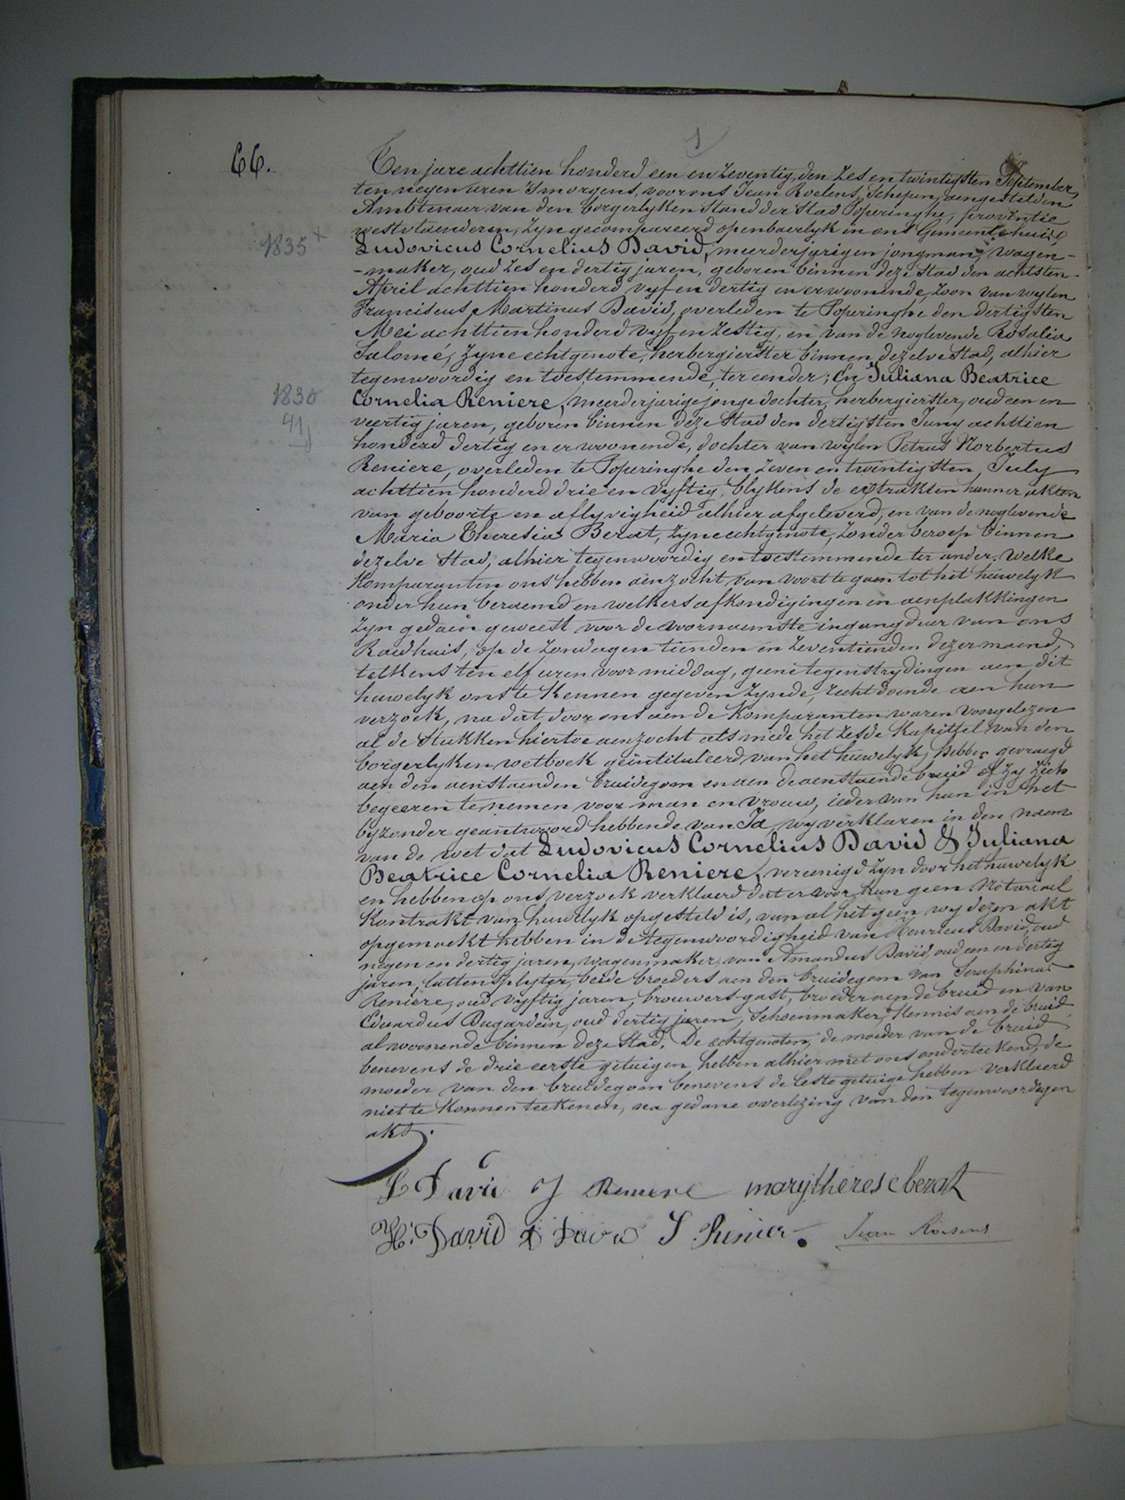 66.
Ten jare achttien honderd een en zeventig, den zes en twintigsten September,
ten negen uren 's morgens, voor ons Jean Roelens, Schepen, aengestelden
Ambtenaer van den borgerlyken Stand der Stad Poperinghe, provintie
westvlaenderen, zyn gecompareerd openbaerlyk in ons Gemeentehuize
1835 x
Ludovicus Cornelius David, meerderjarigen jongman, wagen-
-maker, oud zes en dertig jaren, geboren binnen deze Stad den achtsten
April achttien honderd vyf en dertig en er woonende, zoon van wylen
Franciscus Martinus David, overleden te Poperinghe den dertigsten
Mei achttien honderd vyf en zestig, en van de noglevende Rosalia
Salomé, zyne echtgenote, herbergierster binnen dezelve Stad, alhier
tegenwoordig en toestemmende, ter eender; En Juliana Beatrice
1830
41
Cornelia Reniere, meerderjarige jonge dochter, herbergierster, oud een en
veertig jaren, geboren binnen deze Stad den dertigsten Juny achttien
honderd dertig en er woonende, dochter van wylen Petrus Norbertus
Reniere, overleden te Poperinghe den zeven en twintigsten July
achttien honderd drie en vyftig, blykens de extrakten hunner akten
van geboorte en aflyvigheid alhier afgeleverd, en van de noglevende
Maria Theresia Berat, zyne echtgenote, zonder beroep binnen
dezelve Stad, alhier tegenwoordig en toestemmende ter ander. Welke
komparanten ons hebben aenzocht van voort te gaen tot het huwelyk
onder hun beraemd en welkers afkondigingen en aenplakkingen
zyn gedaen geweest voor de voornaemste ingangdeur van ons
Raedhuis, op de zondagen tienden en zeventienden dezer maend,
telkens ten elf uren voor middag, geene tegenstrydingen aen dit
huwelyk ons te kennen gegeven zynde, recht doende aen hun
verzoek, na dat door ons aen de komparanten waren voorgelezen
al de stukken hiertoe aenzocht als mede het zesde kapittel van den
borgerlyken wetboek geïntituleerd van het huwelyk, hebben gevraegd
aen den aenstaenden bruidegom en aen de aenstaende bruid of zy zich
begeeren te nemen voor man en vrouw, ieder van hun in het
byzonder geantwoord hebbende van Ja, wy verklaren in den naem
van de wet dat Ludovicus Cornelius David & Juliana
Beatrice Cornelia Reniere, vereenigd zyn door het huwelyk
en hebben op ons verzoek verklaerd dat er voor hun geen Notariael
kontrakt van huwelyk opgesteld is, van al het geen wy dezen akt
opgemaekt hebben in de tegenwoordigheid van Henricus David, oud
negen en dertig jaren, wagenmaker, van Amandus David, oud een en dertig
jaren, lattensplyter, beide broeders aen den bruidegom van Seraphinus
Reniere, oud vyftig jaren, brouwersgast, broeder aen de bruid en van
Eduardus Bagardein, oud dertig jaren, Schoenmaker, Kennis aen de bruid
al woonende binnen deze Stad. De echtgenoten, de moeder van de bruid
benevens de drie eerste getuigen hebben alhier met ons onderteekend, de
moeder van den bruidegom benevens de leste getuige hebben verklaerd
niet te konnen teekenen, na gedane overlezing van den tegenwoordigen
akt.
L David J Reniere marytherese berat
H. David A David S. Renier. Jean Roelens